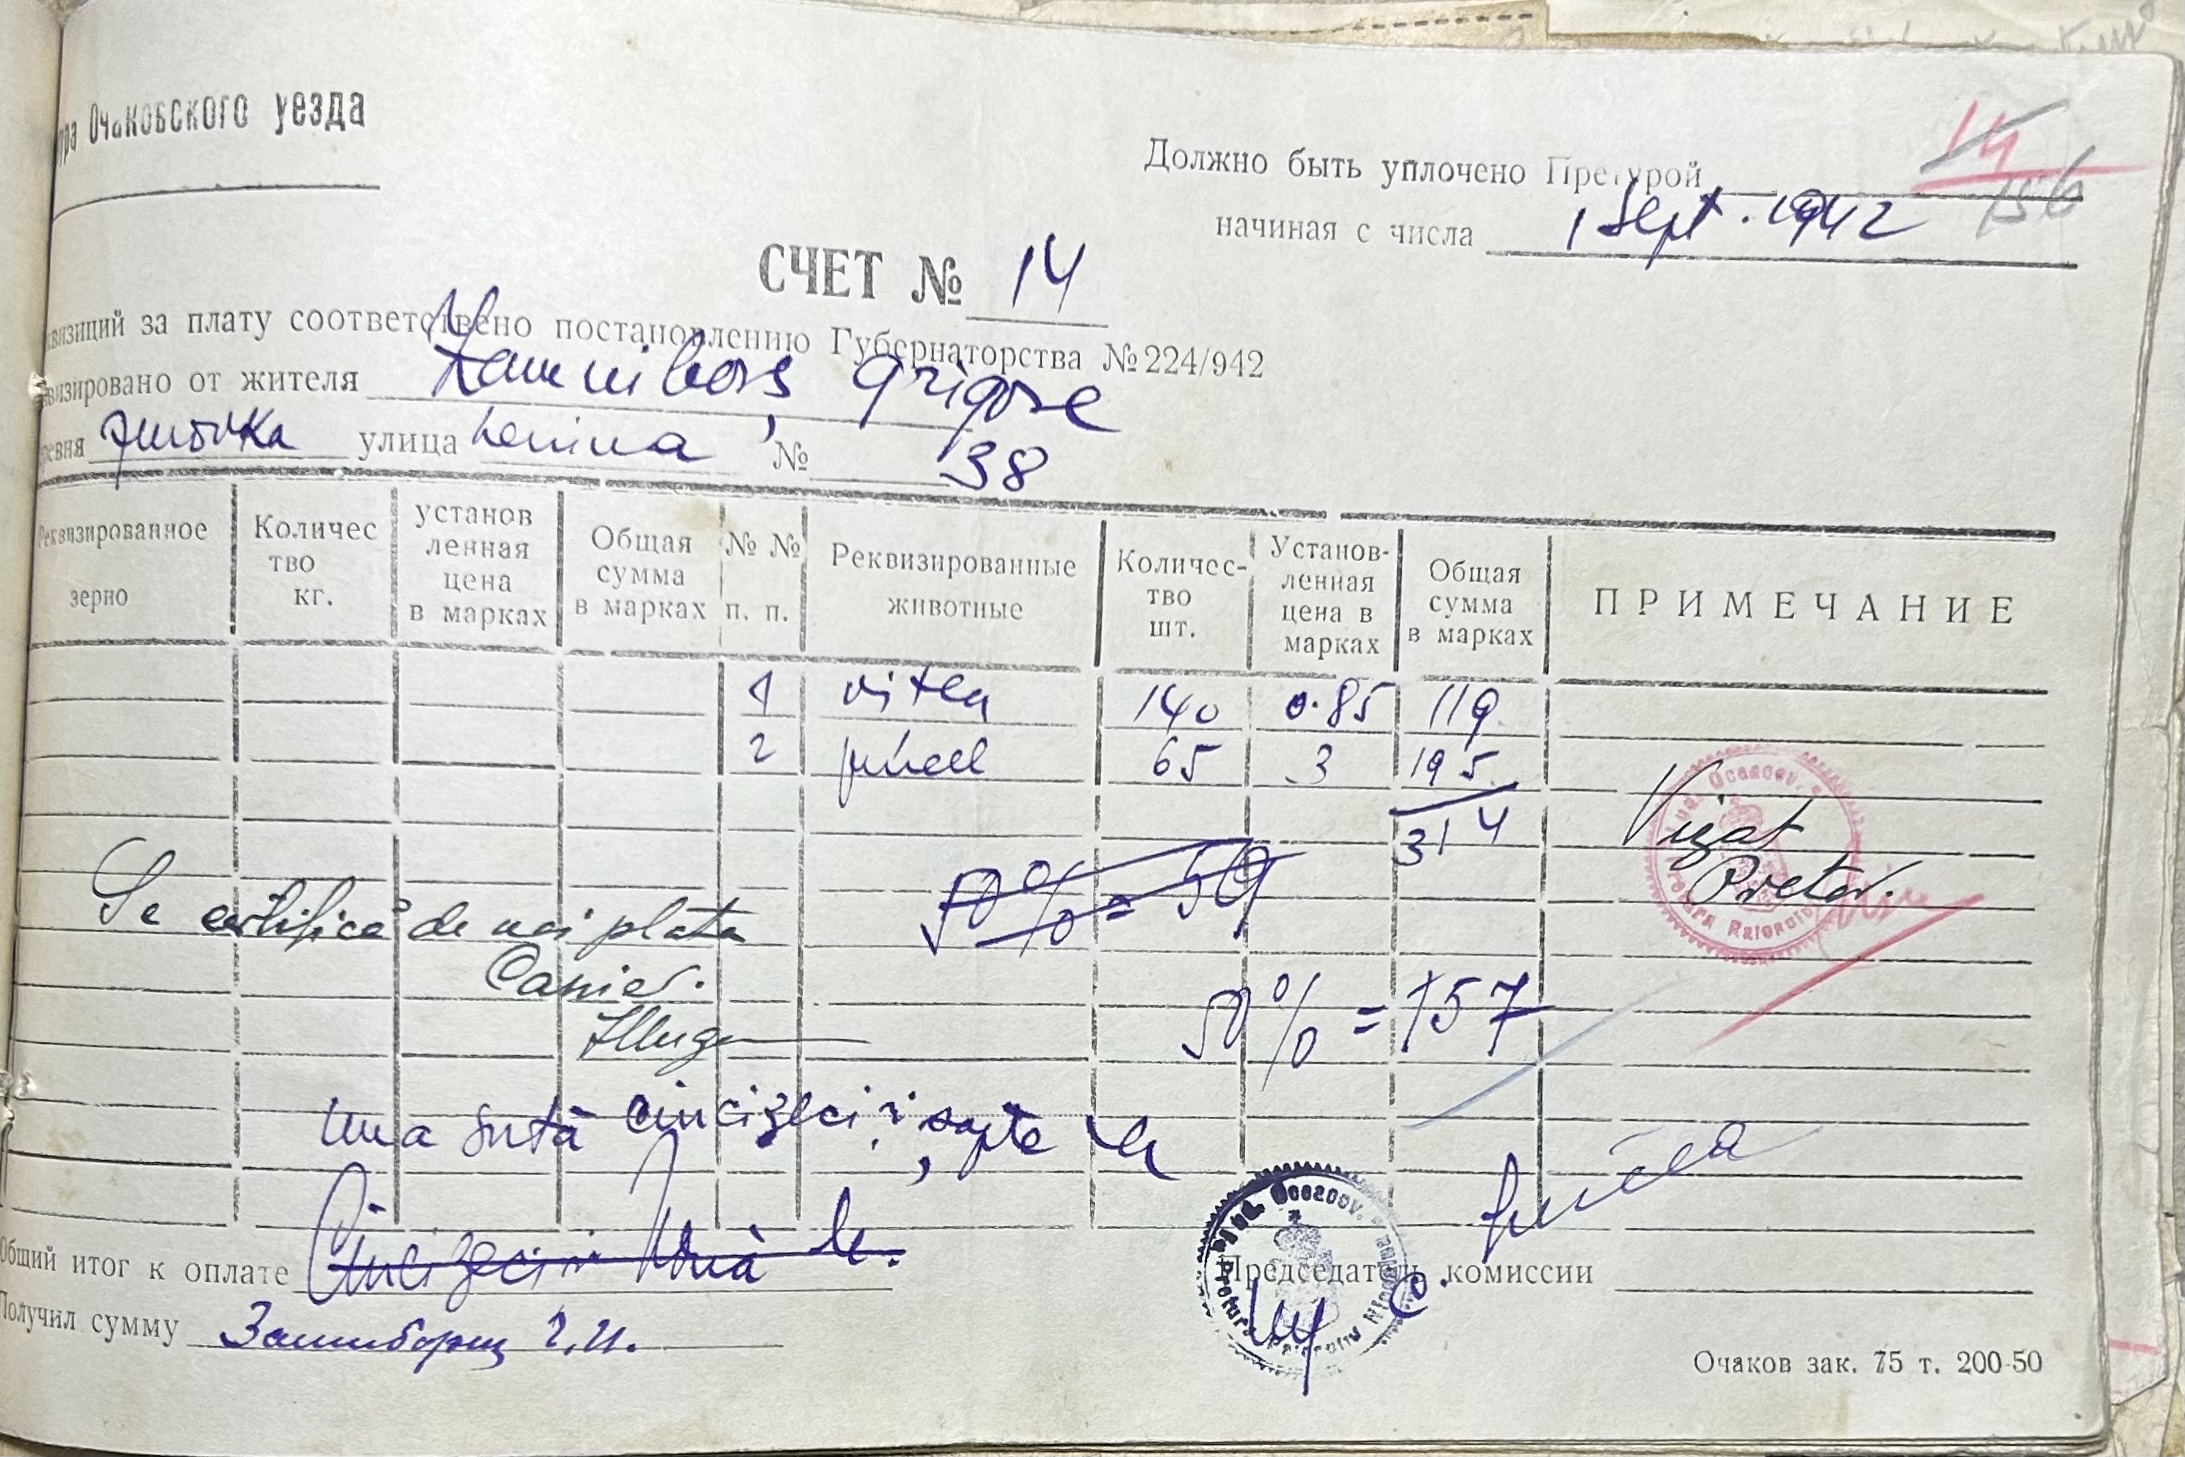 тра Очаковского уезда
Должно быть уплочено Претурой
14
156
начиная с числа 1 Sept. 1942
СЧЕТ № 14
квизиций за плату соответствено постановлению Губернаторства № 224/942
квизировано от жителя Grigore
ревня улица Lenina № 38
Реквизированное зерно
Количес тво кг.
установ ленная цена в марках
Общая сумма в марках
№ № п. п.
Реквизированные животные
Количес- тво шт.
Установ- ленная цена в марках
Общая сумма в марках
ПРИМЕЧАНИЕ
1 vitea 140 0.85 119
2 65 3 195
314
Vizat
Pretor.
50% = 59
Se certifică de noi plata
Casier.
50% = 157
Una sută cincizeci și șapte lei
Общий итог к оплате Cincizeci și Nouă lei.
Председатель комиссии
Получил сумму Замиборщ Г.И.
Очаков зак. 75 т. 200-50